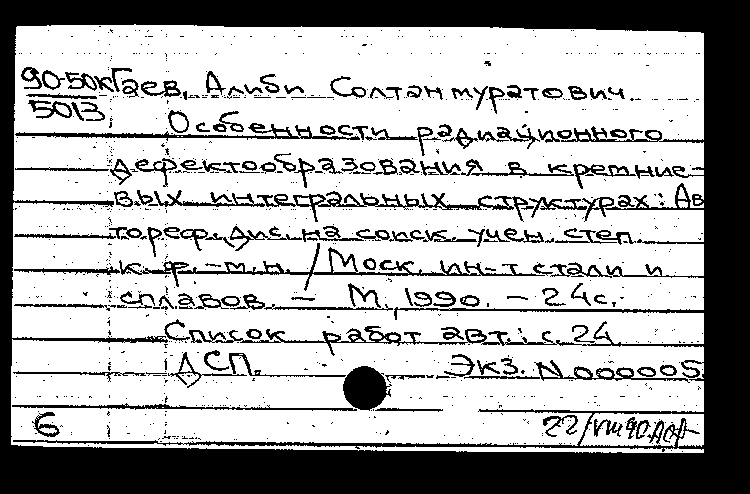 90-50к Гаев, Алиби Солтанмуратович.
5013
Особенности радиационного
дефектообразования в кремние-
вых интегральных структурах: Ав
тореф. дис. на соиск. учен. степ.
к. ф.-м.н. / Моск. ин-т стали и
сплавов. — М., 1990. — 24с.
Список работ авт.: с. 24.
ДСП. Экз. N 000005.
6 22/VIII90